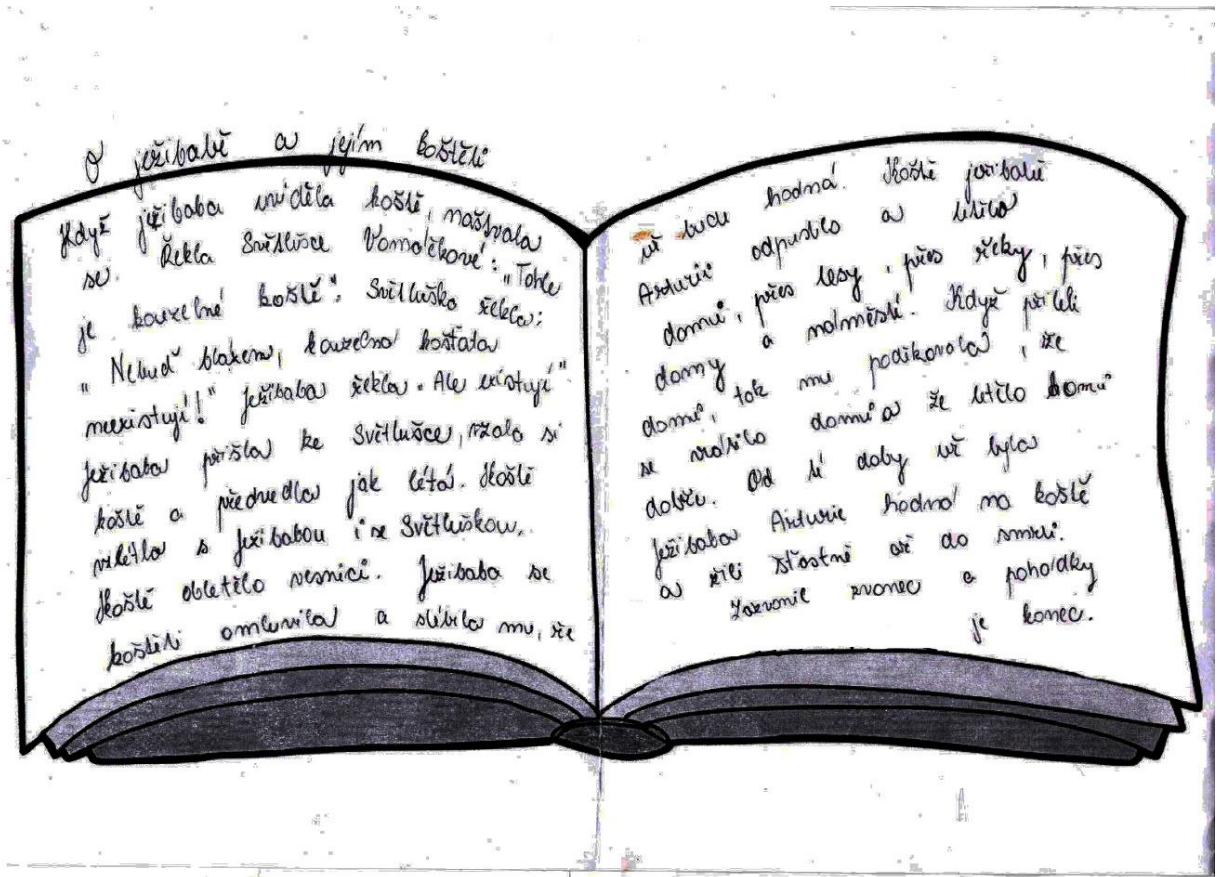 O ježibabě a jejím koštěti
Když ježibaba uviděla koště, naštvala
se. Řekla Světlušce Vomáčkové: "Tohle
je kouzelné koště". Světluška řekla:
"Nebuď blázen, kouzelna košťata
neexistují!" Ježibaba řekla. Ale existují"
Ježibaba přišla ke Světlušce, vzala si
koště a předvedla jak létá. Koště
vzlétlo s ježibabou i se Světluškou.
Koště obletělo vesnici. Ježibaba se
koštěti omluvila a slíbila mu, že
už budu hodná. Koště ježibabě
Arturii odpustilo a letělo
domů, přes lesy, přes řeky, přes
domy a náměstí. Když přileli
domů, tak mu poděkovala, že
se vrátilo domů a že letělo domů
dobře. Od té doby už byla
Ježibaba Arturie hodná na koště
a žili šťastně až do smrti.
Zazvonil zvonec a pohádky
je konec.